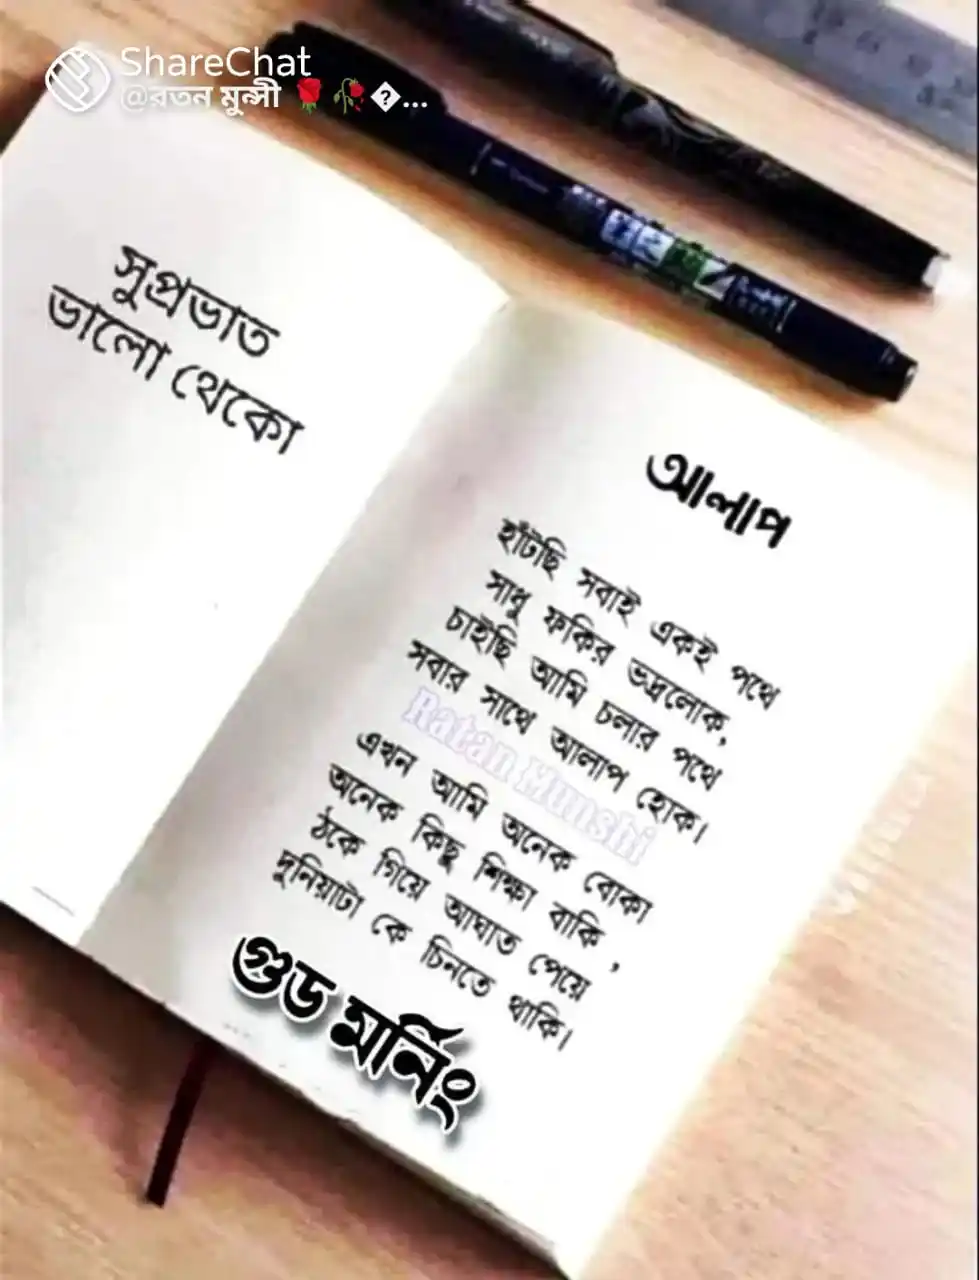 ShareChat
@রতন মুন্সী 🌹🥀�...
সুপ্রভাত
ভালো থেকো
আলাপ
হাঁটছি সবাই একই পথে
সাধু ফকির ভদ্রলোক,
চাইছি আমি চলার পথে
সবার সাথে আলাপ হোক।
Ratan Munshi
এখন আমি অনেক বোকা
অনেক কিছু শিক্ষা বাকি ,
ঠকে গিয়ে আঘাত পেয়ে
দুনিয়াটা কে চিনতে থাকি।
গুড মর্নিং